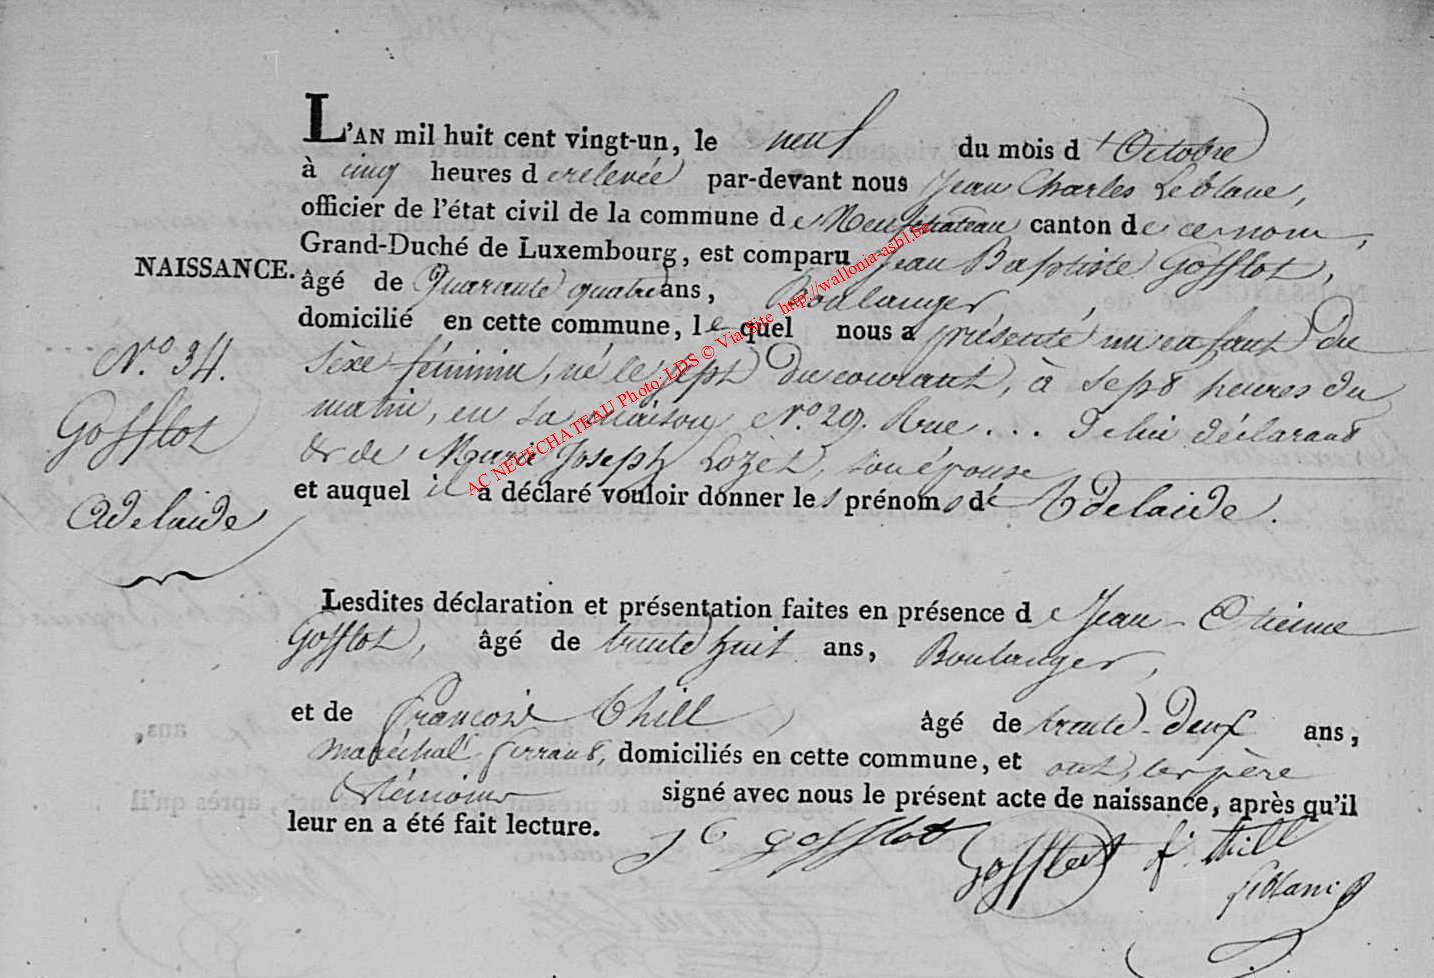 L'AN mil huit cent vingt-un, le neuf du mois d'Octobre
à cinq heures de relevée par-devant nous Jean Charles Leblanc,
officier de l'état civil de la commune de Neufchateau canton de ce nom,
Grand-Duché de Luxembourg, est comparu Jean Baptiste Gofflot,
NAISSANCE.
âgé de Quarante quatre ans, Boulanger
domicilié en cette commune, lequel nous a présenté un enfant du
N.º 34.
Sèxe féminin, né le sept du courant, à sept heures du
Gofflot
matin, en sa maison Nº 29. Rue... De lui déclarant
& de Marie Joseph Lozet, son épouse
Adelaïde
et auquel il a déclaré vouloir donner les prénoms de Adelaïde.
Lesdites déclaration et présentation faites en présence de Jean-Etienne
Gofflot, âgé de trente huit ans, Boulanger,
et de François Thill, âgé de trente-deux ans,
maréchal ferrant, domiciliés en cette commune, et ont, les père
& témoins signé avec nous le présent acte de naissance, après qu'il
leur en a été fait lecture.
J E gofflot Gofflot f. thill
Leblanc
AC NEUFCHATEAU Photo: LDS © Via Site http://wallonia-asbl.be